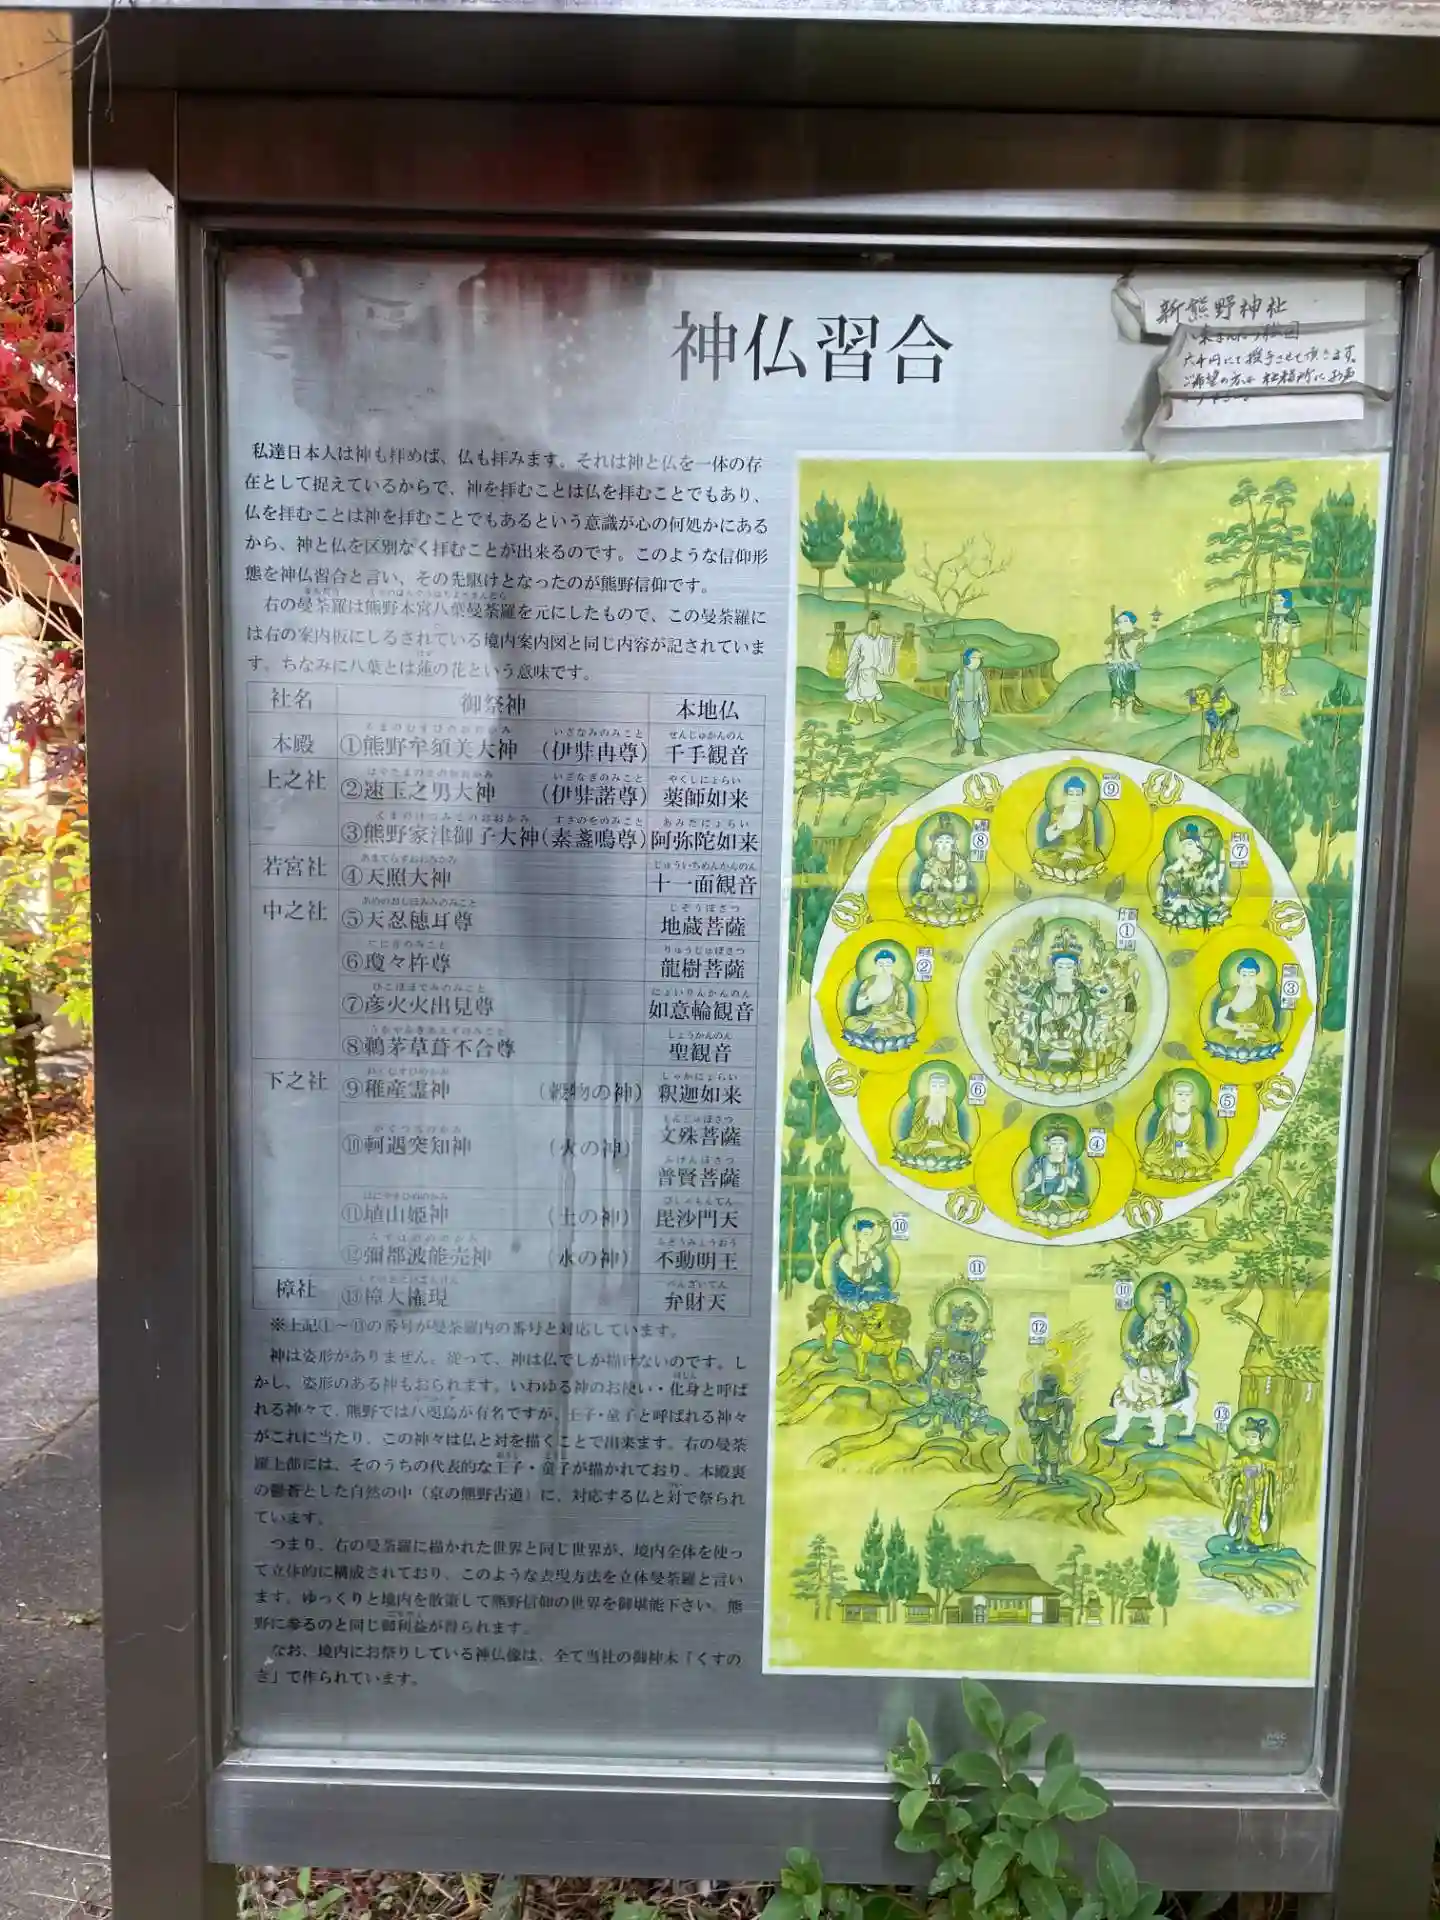 神仏習合
新熊野神社
六千円にて授与させて頂きます。
ご希望の方は 社務所にお声
私達日本人は神も拝めば、仏も拝みます。それは神と仏を一体の存
在として捉えているからで、神を拝むことは仏を拝むことでもあり、
仏を拝むことは神を拝むことでもあるという意識が心の何処かにある
から、神と仏を区別なく拝むことが出来るのです。このような信仰形
態を神仏習合と言い、その先駆けとなったのが熊野信仰です。
右の曼荼羅は熊野本宮八葉曼荼羅を元にしたもので、この曼荼羅に
は右の案内板にしるされている境内案内図と同じ内容が記されていま
す。ちなみに八葉とは蓮の花という意味です。
社名 御祭神 本地仏
本殿 ①熊野牟須美大神 (伊弉冉尊) 千手観音
上之社 ②速玉之男大神 (伊弉諾尊) 薬師如来
③熊野家津御子大神(素盞鳴尊) 阿弥陀如来
若宮社 ④天照大神 十一面観音
中之社 ⑤天忍穂耳尊 地蔵菩薩
⑥瓊々杵尊 龍樹菩薩
⑦彦火火出見尊 如意輪観音
⑧鵜茅草葺不合尊 聖観音
下之社 ⑨稚産霊神 (穀物の神) 釈迦如来
⑩軻遇突知神 (火の神) 文殊菩薩
普賢菩薩
⑪埴山姫神 (土の神) 毘沙門天
⑫彌都波能売神 (水の神) 不動明王
樟社 ⑬樟大権現 弁財天
※上記①～⑬の番号が曼荼羅内の番号と対応しています。
神は姿形がありません。従って、神は仏でしか描けないのです。し
かし、姿形のある神もおられます。いわゆる神のお使い・化身と呼ば
れる神々で、熊野では八咫烏が有名ですが、王子・童子と呼ばれる神々
がこれに当たり、この神々は仏と対を描くことで出来ます。右の曼荼
羅上部には、そのうちの代表的な王子・童子が描かれており、本殿裏
の鬱蒼とした自然の中（京の熊野古道）に、対応する仏と対で祭られ
ています。
つまり、右の曼荼羅に描かれた世界と同じ世界が、境内全体を使っ
て立体的に構成されており、このような表現方法を立体曼荼羅と言い
ます。ゆっくりと境内を散策して熊野信仰の世界を御堪能下さい。熊
野に参るのと同じ御利益が得られます。
なお、境内にお祭りしている神仏像は、全て当社の御神木「くすの
き」で作られています。
⑨
⑧
⑦
①
②
③
⑥
⑤
④
⑩
⑪
⑩
⑫
⑬